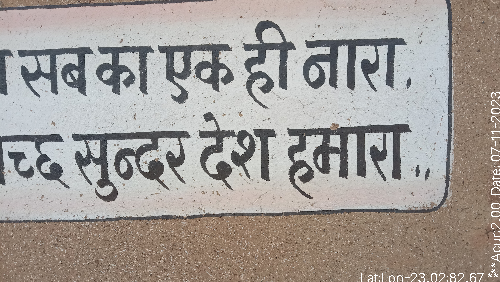 सबका एक ही नारा,
सुन्दर देश हमारा..
Lat:Lon-23.02:82.67 ***Acur:2.00, Date: 07-11-2023